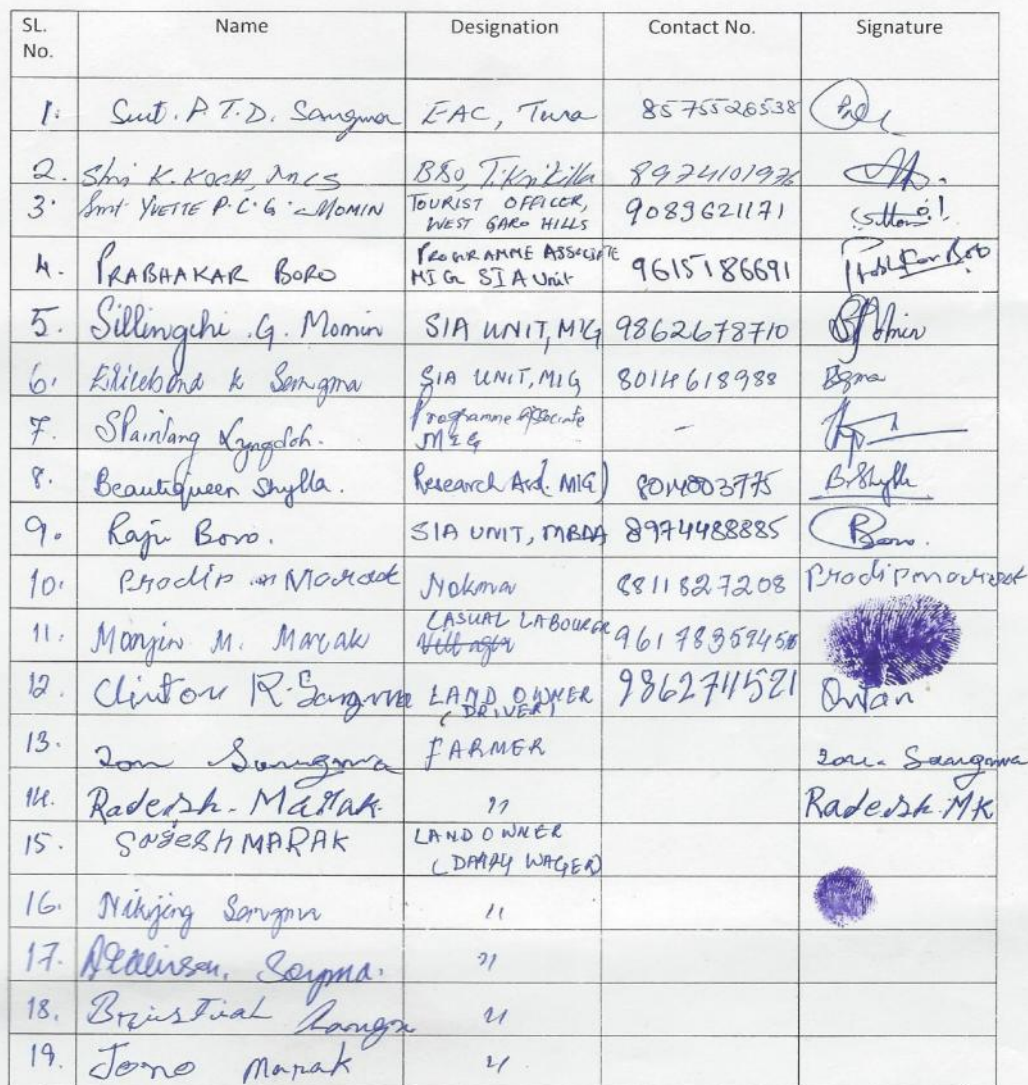 SL. No. Name Designation Contact No. Signature
1. Smt. P.T.D. Sangma EAC, Tura 8575526538
2. Shri K. Koch, MCS BDO, Tikrikilla 8974101976
3. Smt YVETTE P.C.G. MOMIN TOURIST OFFICER, WEST GARO HILLS 9089621171
4. PRABHAKAR BORO PROGRAMME ASSOCIATE MIG SIA Unit 9615186691
5. Sillingchi .G. Momin SIA UNIT, MIG 9862678710
6. K Sangma SIA UNIT, MIG 8014618988
7. Lyngdoh. Programme Associate MIG -
8. Beautiqueen Shylla. Research Asst. MIG) 8014003775 B.Shylla
9. Raju Boro. SIA UNIT, MBDA 8974488885 Boro.
10. Prodip Marak Nokma 8811827208 Prodip marak
11. Manjin M. Marak CASUAL LABOURER
12. Clinton R. Sangma LAND OWNER (DRIVER) 9862711521
13. Sangma FARMER Sangma
14. Radersh. Marak. " Radersh. MK
15. MARAK LAND OWNER (DAILY WAGER)
16. Nikjeng Sangma "
17. Sangma. "
18. "
19. Jomo Marak "